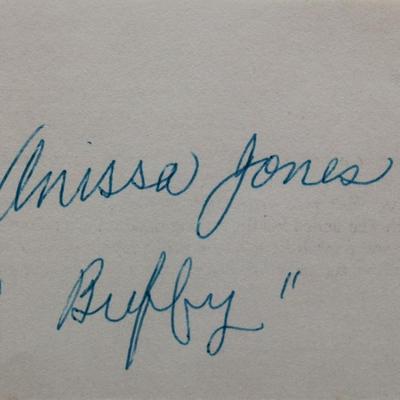 Anissa Jones
" Buffy "